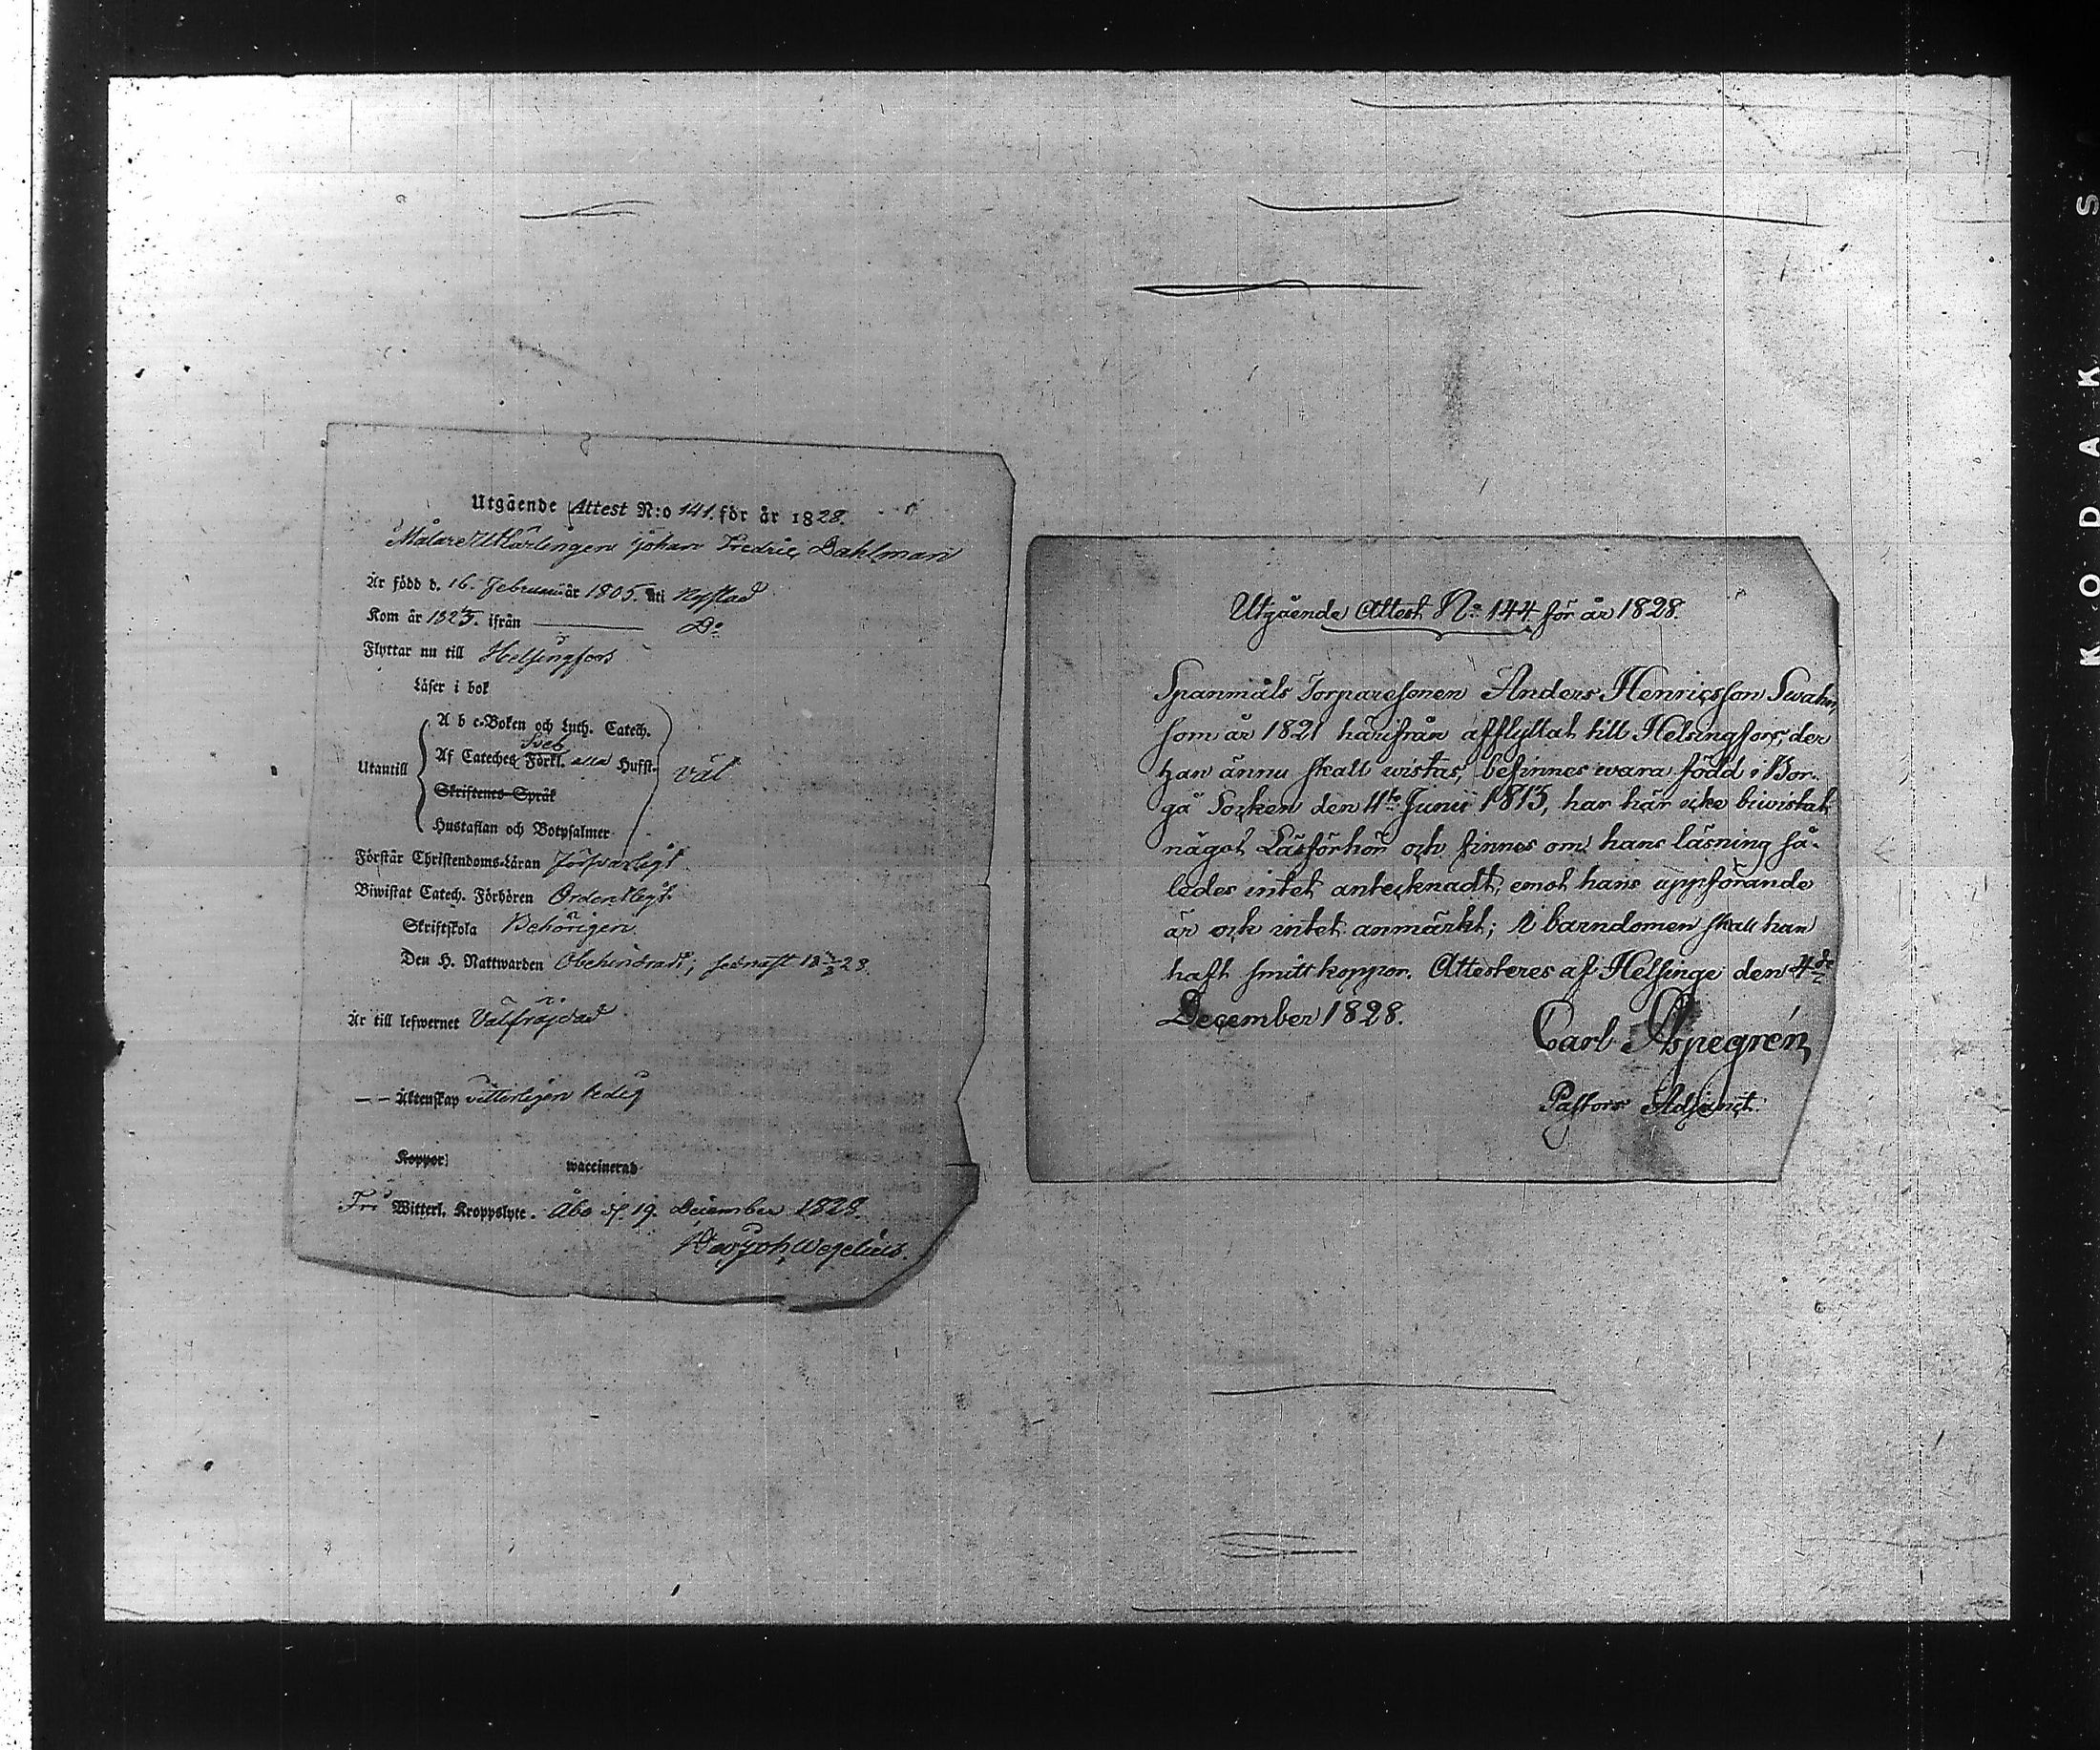 Utgående Attest N:o 141. för år 1828.
Målare Utlärlingen Johan Fredric Dahlman
Är född d. 16. Februarii år 1805. uti
Kom år 1825. ifrån ——— D:o
Flyttar nu till Helsingfors
Läser i bok
A b c-Boken och Luth. Catech.
Sveb
Af Cateches Förkl. alla Hufst.
Utantill
väl
Skriftenes Språk
Hustaflan och Botpsalmer
Förstår Christendoms-Läran försvarligt
Biwistat Catech. Förhören Ordentligt.
Skriftskola Behörigen
Den H. Nattwarden Obehindradt; sednast 28.
Är till lefwernet Välfräjdad
— — Äktenskap vitterligen ledig
Koppor: waccinerad
Fri Witterl. Kroppslyte. Åbo d. 19. December 1828.
Joh. Wegelius.
Utgående Attest No 144. för år 1828.
Spanmåls Torparesonen Anders Henricsson Swahn,
som år 1821 härifrån afflyttat till Helsingfors, der
han ännu skall wistas, befinnes wara född i Bor-
gå Socken den 4de Junii 1813, har här icke biwistat
något Läsförhör och finnes om hans läsning så-
ledes intet antecknadt; emot hans uppförande
är ock intet anmärkt; I barndomen skall han
haft smittkoppor. Attesteres af Helsinge den 4de
December 1828.
Carl Aspegrén
Pastors Adjunct.
KODAK S